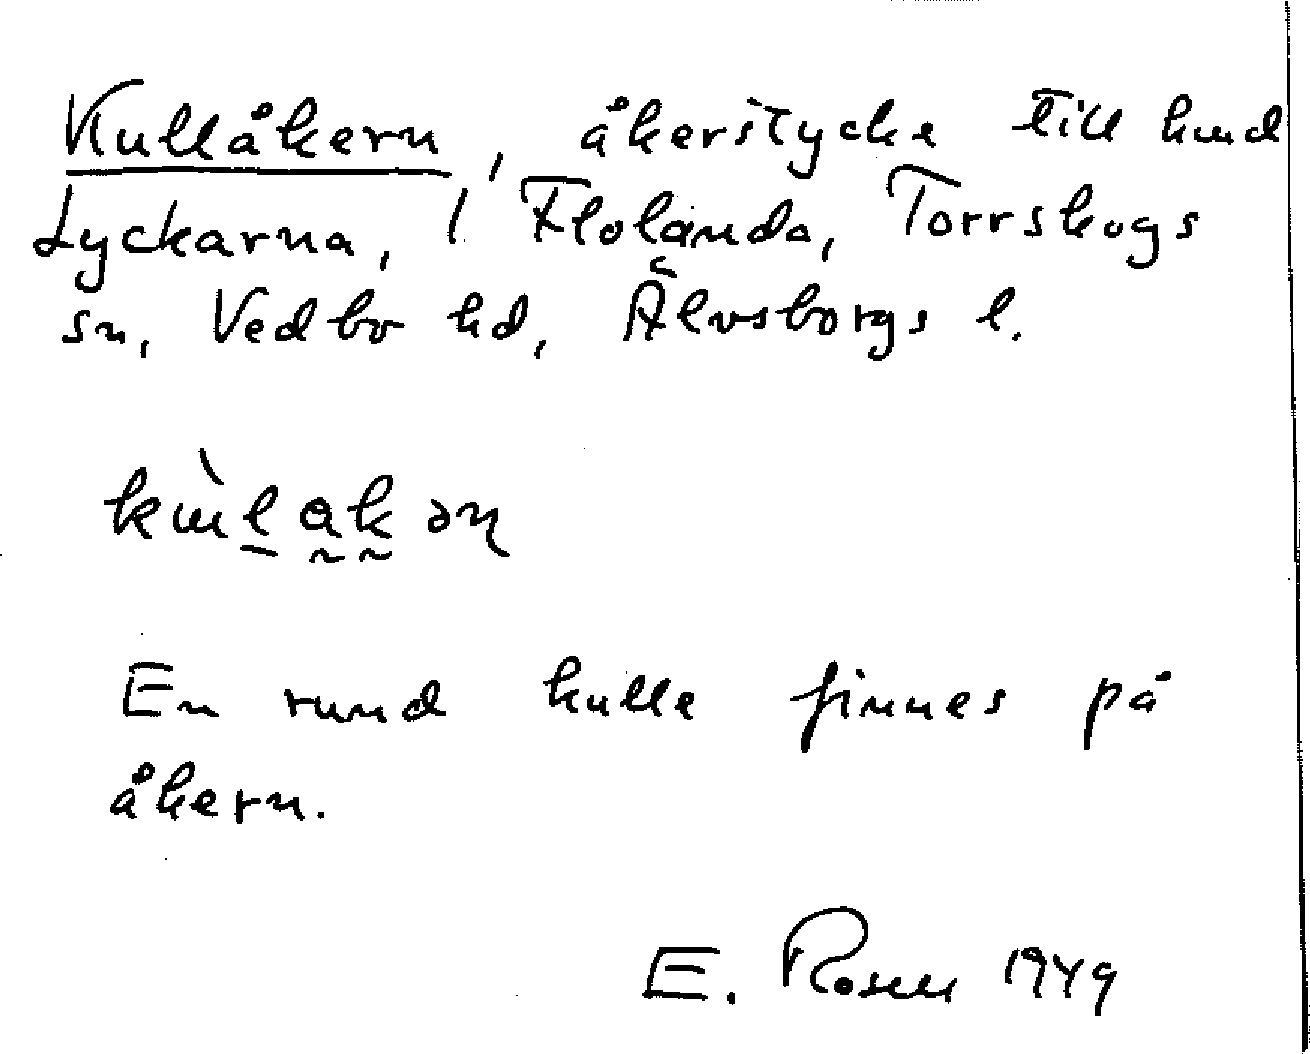 Kullåkern, åkerstycke till hmd
Lyckarna, 1 Flolanda, Torrskogs
sn, Vedbo hd, Älvsborgs l.
En rund kulle finnes på
åkern.
E. Rosen 1949